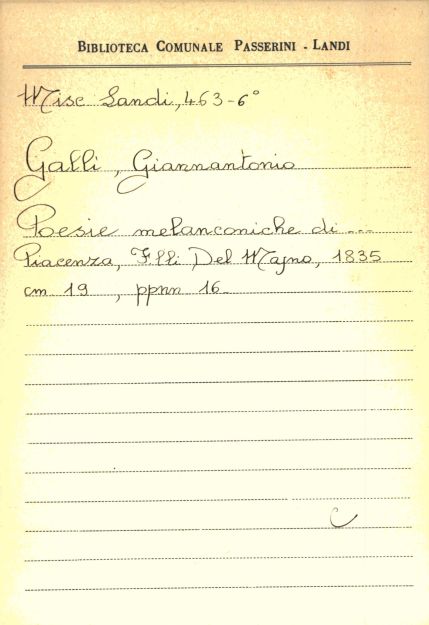 BIBLIOTECA COMUNALE PASSERINI - LANDI
Misc Landi, 463-6°
Galli, Giannantonio
Poesie melanconiche di ---
Piacenza, F.lli Del Majno, 1835
cm 19, ppnn 16.
C